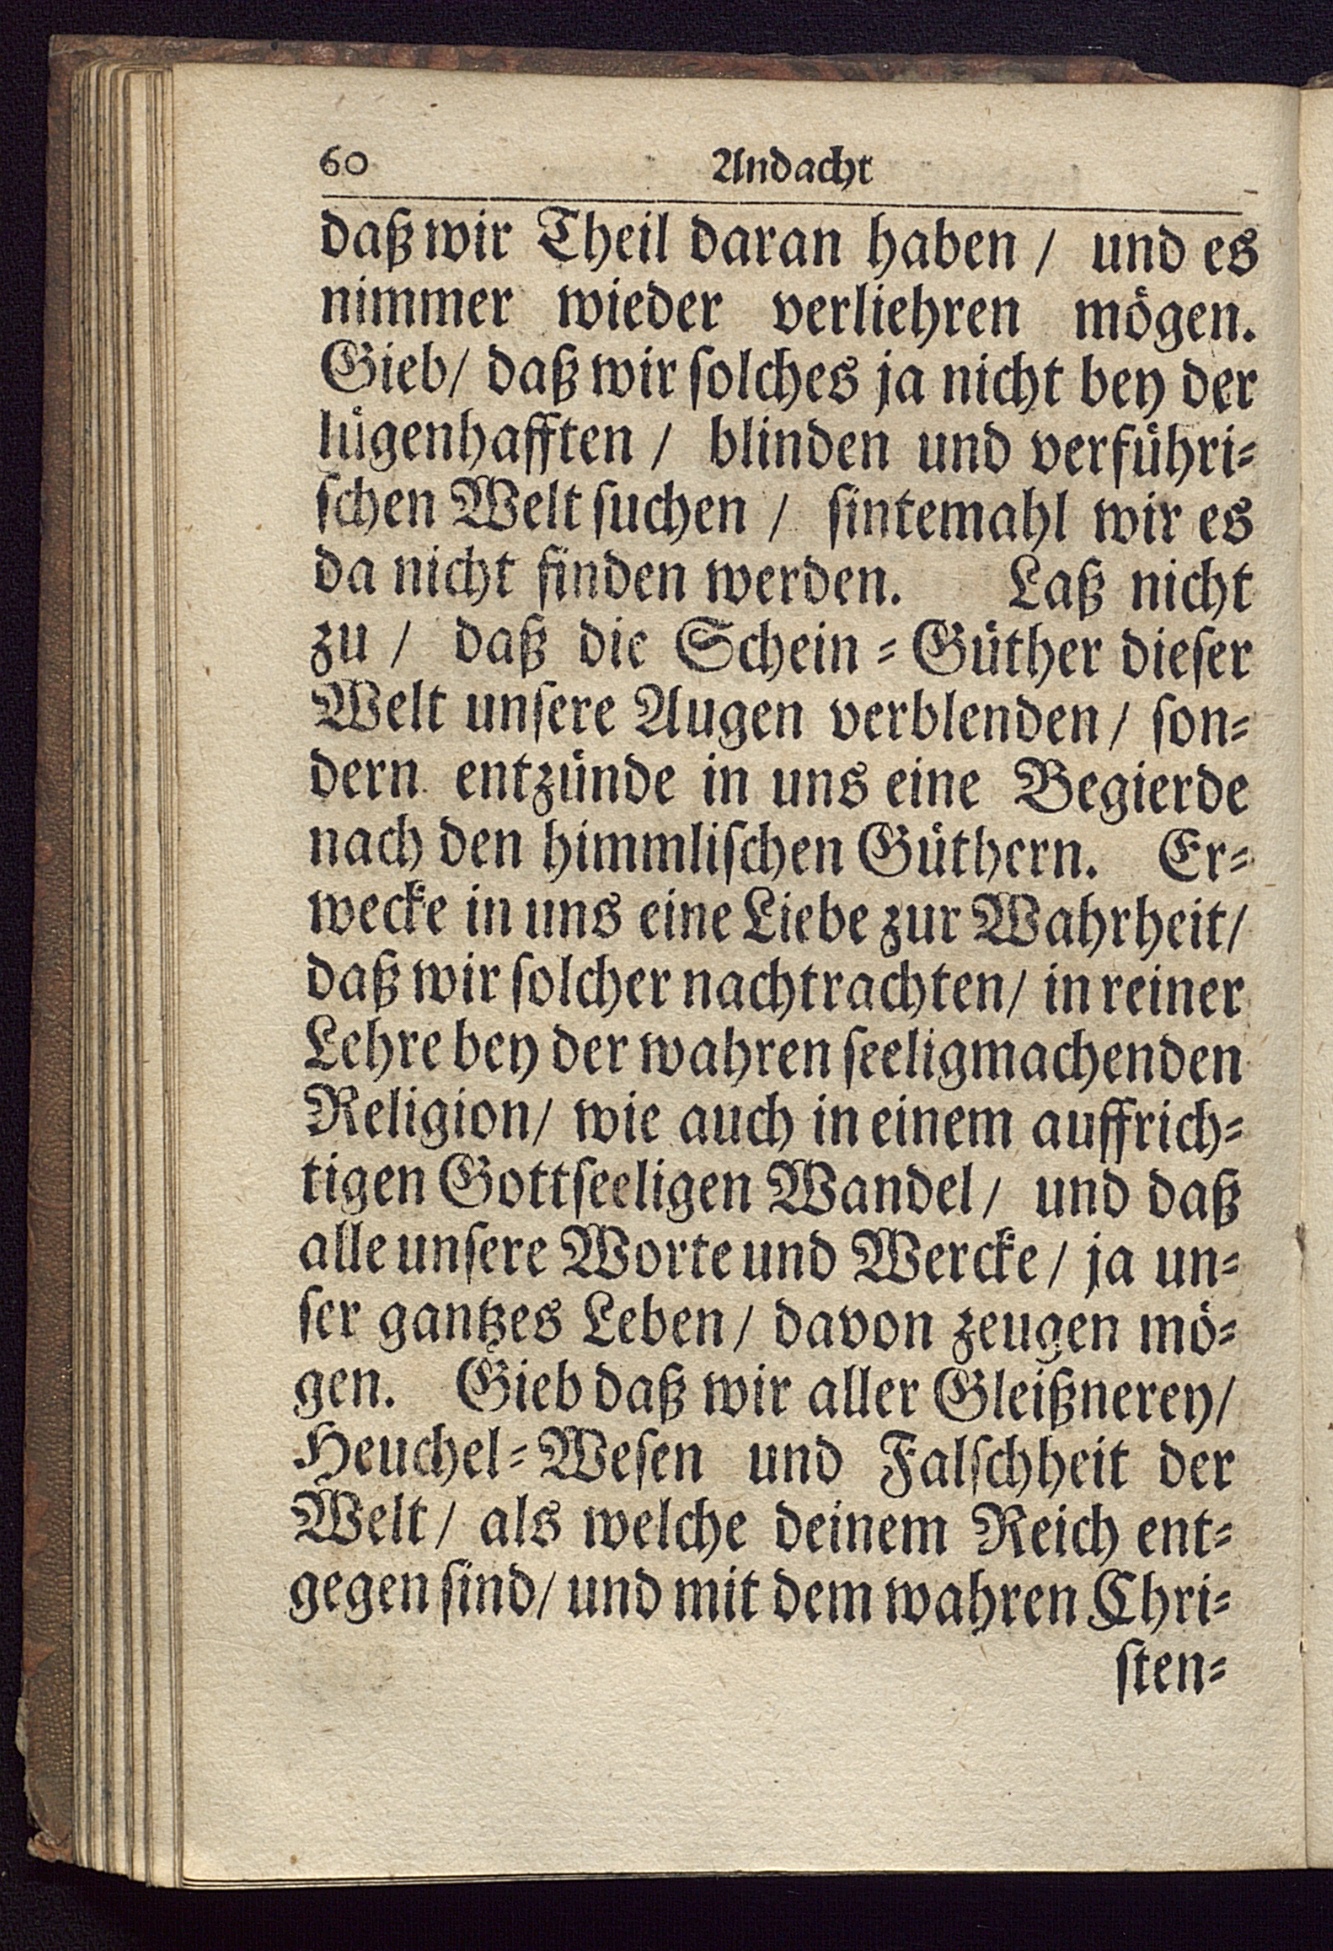 60 Andacht
daß wir Theil daran haben / und es
nimmer wieder verliehren mögen.
Gieb/ daß wir solches ja nicht bey der
lügenhafften / blinden und verführi-
schen Welt suchen / sintemahl wir es
da nicht finden werden. Laß nicht
zu / daß die Schein-Güther dieser
Welt unsere Augen verblenden/ son-
dern entzünde in uns eine Begierde
nach den himmlischen Güthern. Er-
wecke in uns eine Liebe zur Wahrheit/
daß wir solcher nachtrachten/ in reiner
Lehre bey der wahren seeligmachenden
Religion/ wie auch in einem auffrich-
tigen Gottseeligen Wandel/ und daß
alle unsere Worte und Wercke/ ja un-
ser gantzes Leben/ davon zeugen mö-
gen. Gieb daß wir aller Gleißnerey/
Heuchel-Wesen und Falschheit der
Welt/ als welche deinem Reich ent-
gegen sind/ und mit dem wahren Chri-
sten-